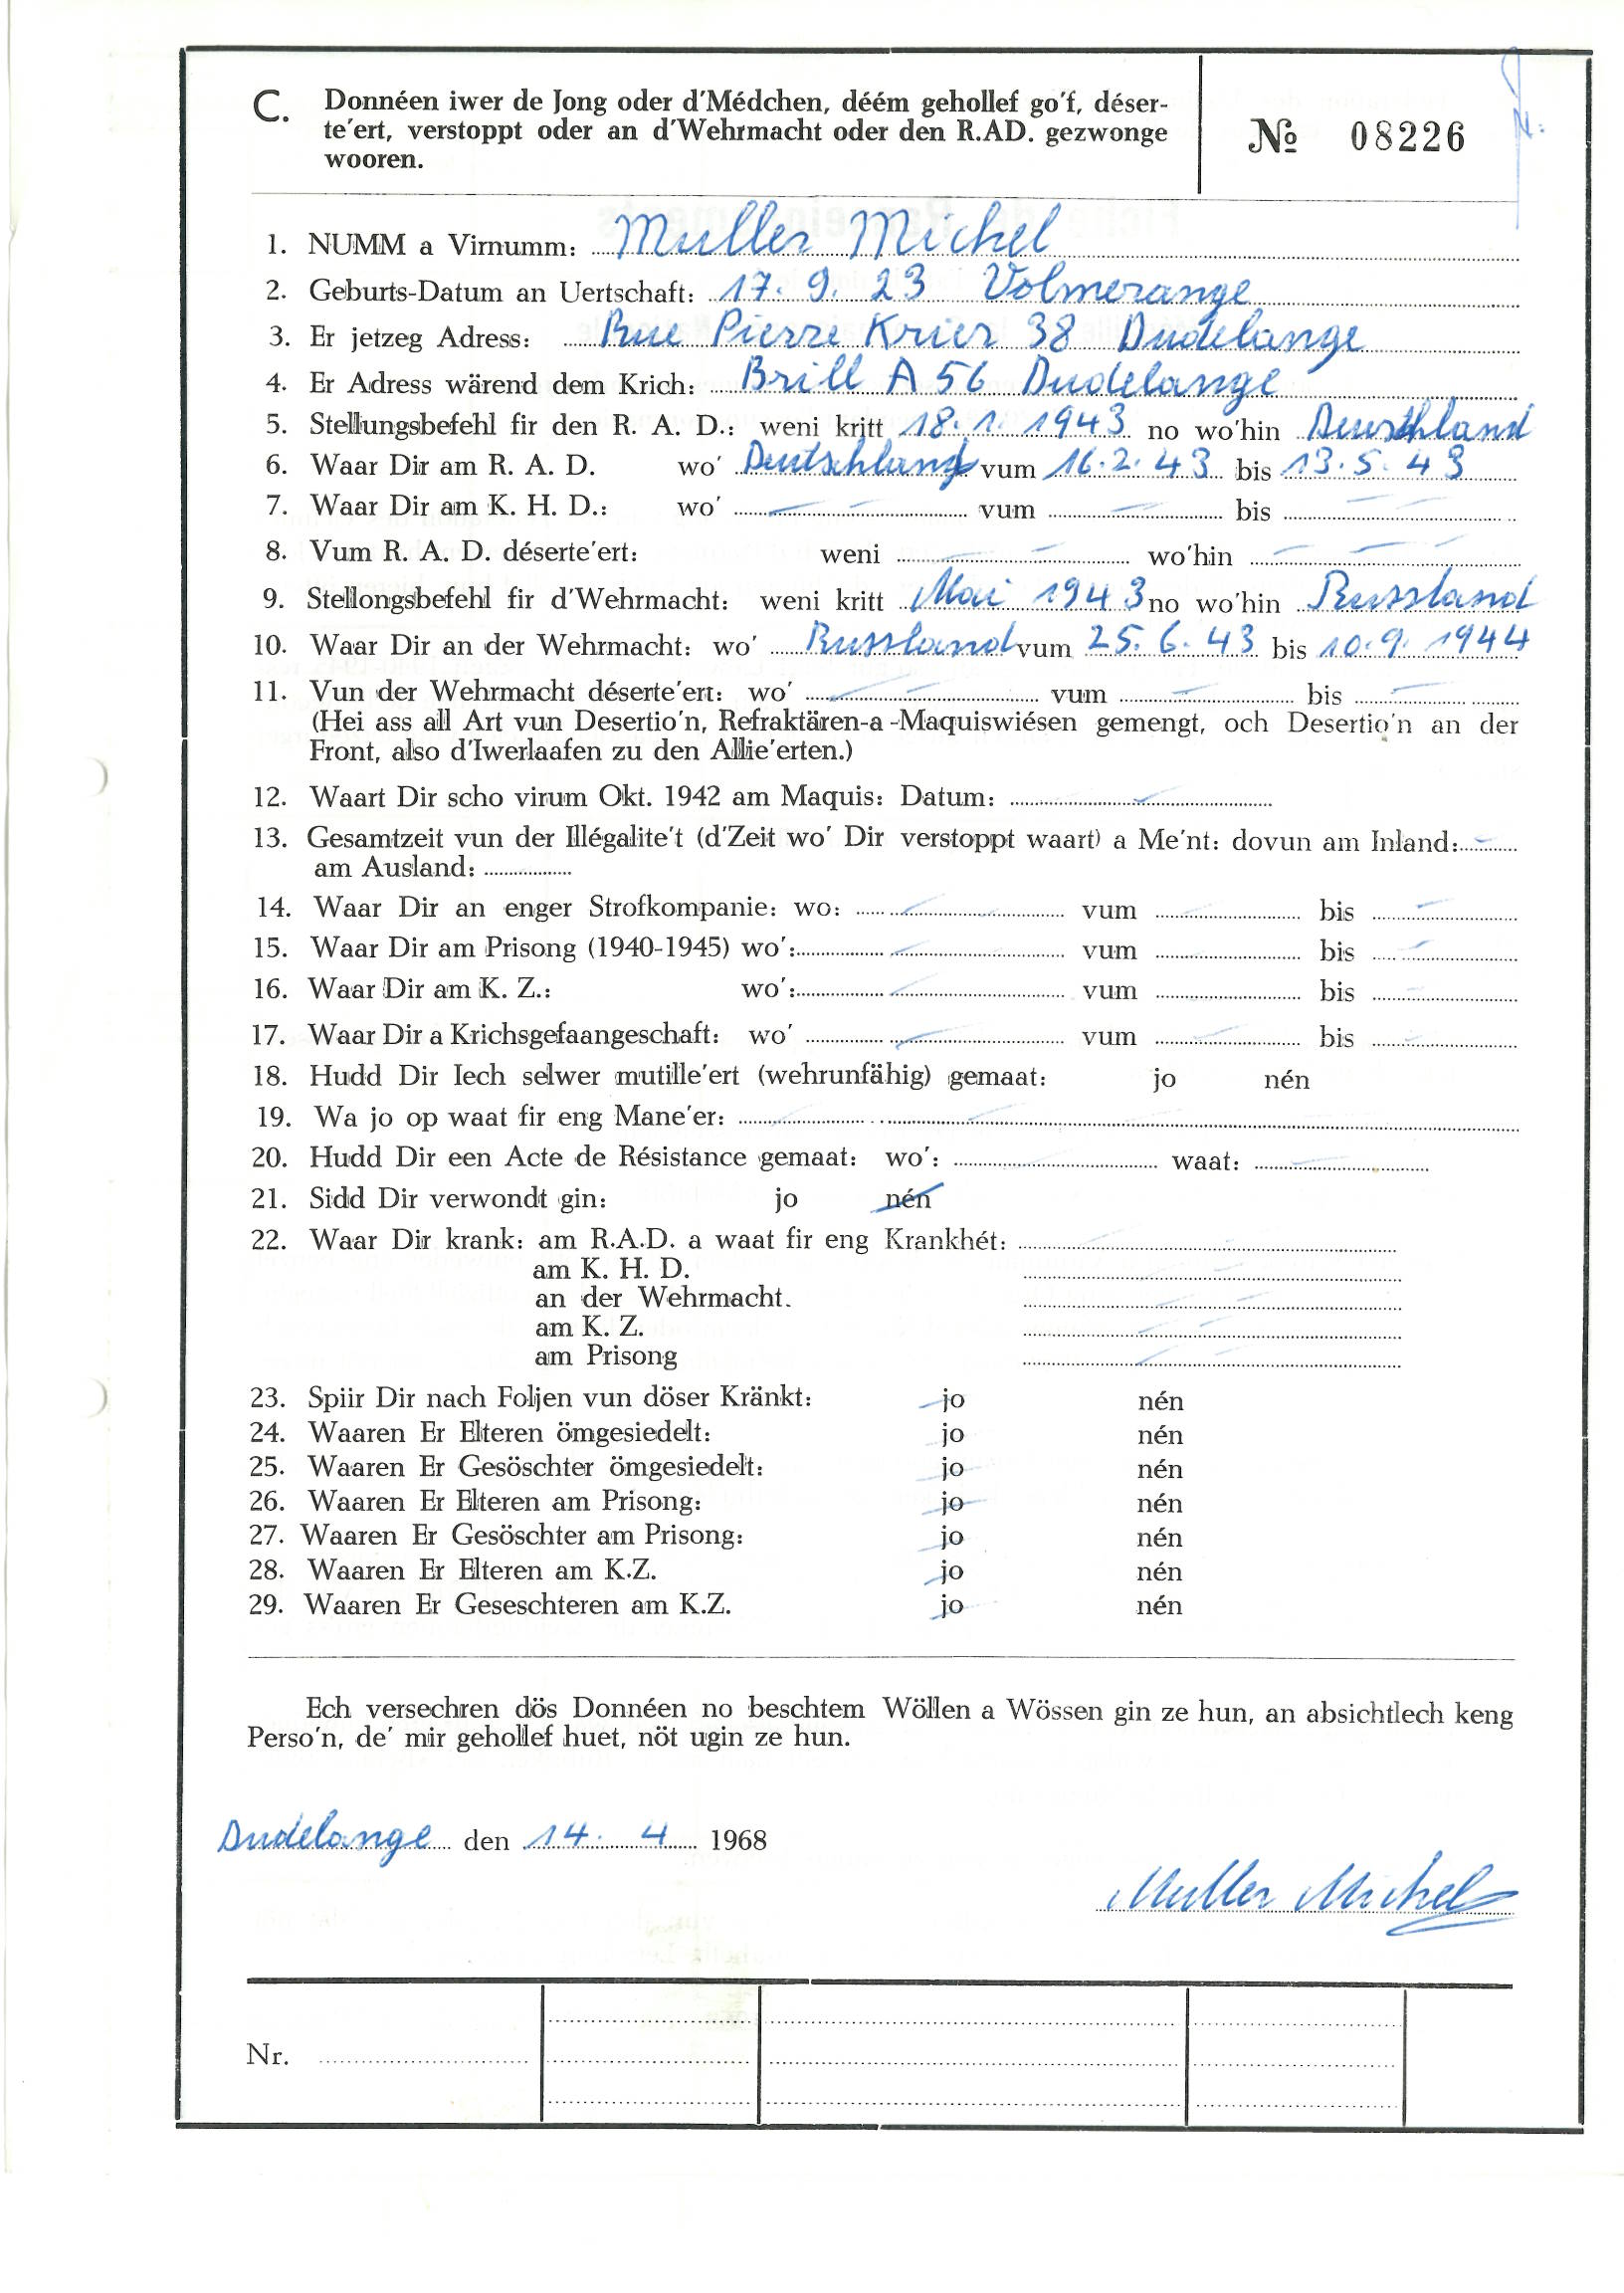 C. Donnéen iwer de Jong oder d'Médchen, déém gehollef go'f, déser-
te'ert, verstoppt oder an d'Wehrmacht oder den R.AD. gezwonge
wooren.
№ 08226
1. NUMM a Virnumm: Muller Michel
2. Geburts-Datum an Uertschaft: 17. 9. 23 Volmerange
3. Er jetzeg Adress: Rue Pierre Krier 38 Dudelange
4. Er Adress wärend dem Krich: Brill A 56 Dudelange
5. Stellungsbefehl fir den R. A. D.: weni kritt 18. 1. 1943 no wo'hin Deutschland
6. Waar Dir am R. A. D. wo' Deutschland vum 16. 2. 43 bis 13. 5. 43
7. Waar Dir am K. H. D.: wo' — — vum — bis — —
8. Vum R. A. D. déserte'ert: weni — — wo'hin — — —
9. Stellongsbefehl fir d'Wehrmacht: weni kritt Mai 1943 no wo'hin Russland
10. Waar Dir an der Wehrmacht: wo' Russland vum 25. 6. 43 bis 10. 9. 1944
11. Vun der Wehrmacht déserte'ert: wo' — — vum — bis —
(Hei ass all Art vun Desertio'n, Refraktären-a-Maquiswiésen gemengt, och Desertio'n an der
Front, also d'Iwerlaafen zu den Allie'erten.)
12. Waart Dir scho virum Okt. 1942 am Maquis: Datum: —
13. Gesamtzeit vun der Illégalite't (d'Zeit wo' Dir verstoppt waart) a Me'nt: dovun am Inland: —
am Ausland:
14. Waar Dir an enger Strofkompanie: wo: — vum — bis —
15. Waar Dir am Prisong (1940-1945) wo': — vum bis —
16. Waar Dir am K. Z.: wo': — vum bis —
17. Waar Dir a Krichsgefaangeschaft: wo' — vum — bis —
18. Hudd Dir Iech selwer mutille'ert (wehrunfähig) gemaat: jo nén
19. Wa jo op waat fir eng Mane'er: — —
20. Hudd Dir een Acte de Résistance gemaat: wo': — waat: —
21. Sidd Dir verwondt gin: jo nén
22. Waar Dir krank: am R.A.D. a waat fir eng Krankhét:
am K. H. D.
an der Wehrmacht.
am K. Z.
am Prisong
23. Spiir Dir nach Foljen vun döser Kränkt: jo nén
24. Waaren Er Elteren ömgesiedelt: jo nén
25. Waaren Er Gesöschter ömgesiedelt: jo nén
26. Waaren Er Elteren am Prisong: jo nén
27. Waaren Er Gesöschter am Prisong: jo nén
28. Waaren Er Elteren am K.Z. jo nén
29. Waaren Er Geseschteren am K.Z. jo nén
Ech versechren dös Donnéen no beschtem Wöllen a Wössen gin ze hun, an absichtlech keng
Perso'n, de' mir gehollef huet, nöt ugin ze hun.
Dudelange den 14. 4 1968
Muller Michel
Nr.